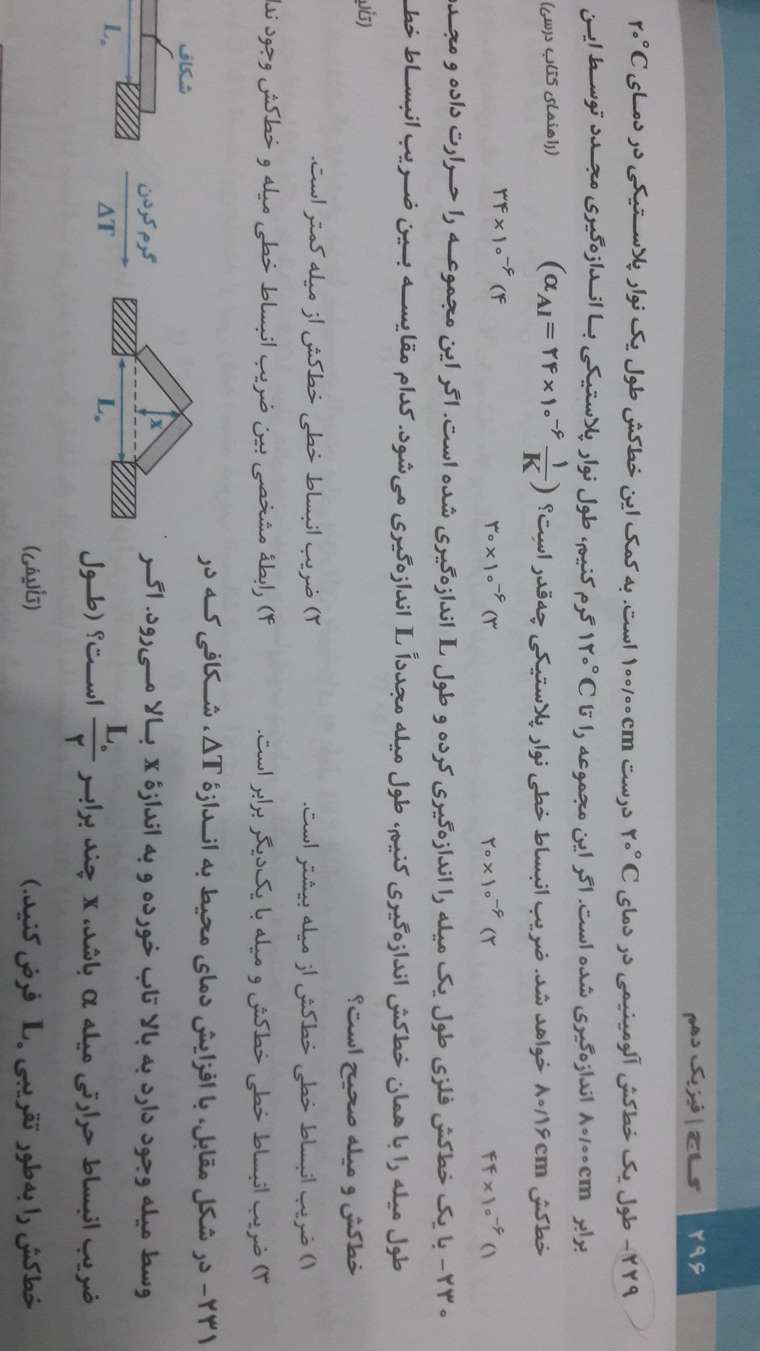 گاج | فیزیک دهم ۲۹۶
۲۲۹- طول یک خط‌کش آلومینیمی در دمای ۲۰°C درست ۱۰۰/۰۰ cm است. به کمک این خط‌کش طول یک نوار پلاستیکی در دمای ۲۰°C
برابر ۸۰/۰۰ cm اندازه‌گیری شده است. اگر این مجموعه را تا ۱۲۰°C گرم کنیم، طول نوار پلاستیکی با اندازه‌گیری مجدد توسط این
خط‌کش ۸۰/۱۶ cm خواهد شد. ضریب انبساط خطی نوار پلاستیکی چه‌قدر است؟ (α_Al = ۲۴×۱۰⁻⁶ ۱/K) (راهنمای کتاب درسی)
۱) ۴۴×۱۰⁻⁶ ۲) ۲۰×۱۰⁻⁶ ۳) ۳۰×۱۰⁻⁶ ۴) ۳۴×۱۰⁻⁶
۲۳۰- با یک خط‌کش فلزی طول یک میله را اندازه‌گیری کرده و طول L اندازه‌گیری شده است. اگر این مجموعه را حرارت داده و
طول میله را با همان خط‌کش اندازه‌گیری کنیم، طول میله مجدداً L اندازه‌گیری می‌شود. کدام مقایسه بین ضریب انبساط
خط‌کش و میله صحیح است؟
۱) ضریب انبساط خطی خط‌کش از میله بیشتر است. ۲) ضریب انبساط خطی خط‌کش از میله کمتر است.
۳) ضریب انبساط خطی خط‌کش و میله با یک‌دیگر برابر است. ۴) رابطهٔ مشخصی بین ضریب انبساط خطی میله و خط‌کش وجود
۲۳۱- در شکل مقابل، با افزایش دمای محیط به اندازهٔ ΔT، شکافی که در
وسط میله وجود دارد به بالا تاب خورده و به اندازهٔ x بالا می‌رود. اگر
ضریب انبساط حرارتی میله α باشد، x چند برابر L₀/۲ است؟ (طول
خط‌کش را به‌طور تقریبی L₀ فرض کنید.) (تألیفی)
شکاف
L₀
گرم کردن
ΔT
x
L₀